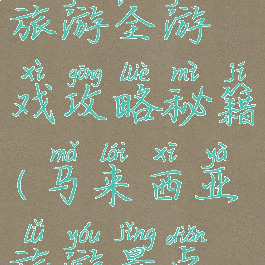 旅游全游
xì gōng lüè mì jí
戏攻略秘籍
mǎ lái xī yà
(马来西亚
lǚ yóu jǐng diǎn
旅游景点